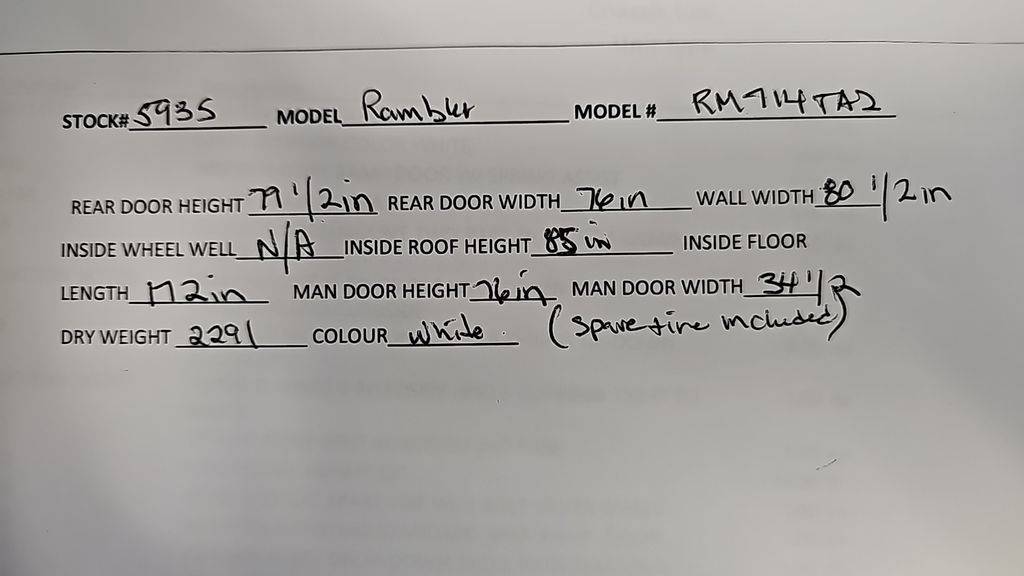 STOCK# 5935 MODEL Rambler MODEL # RM714TA2
REAR DOOR HEIGHT 79 1/2in REAR DOOR WIDTH 76in WALL WIDTH 80 1/2in
INSIDE WHEEL WELL N/A INSIDE ROOF HEIGHT 85 in INSIDE FLOOR
LENGTH 172in MAN DOOR HEIGHT 76in MAN DOOR WIDTH 34 1/2
DRY WEIGHT 2291 COLOUR White (Spare tire included)